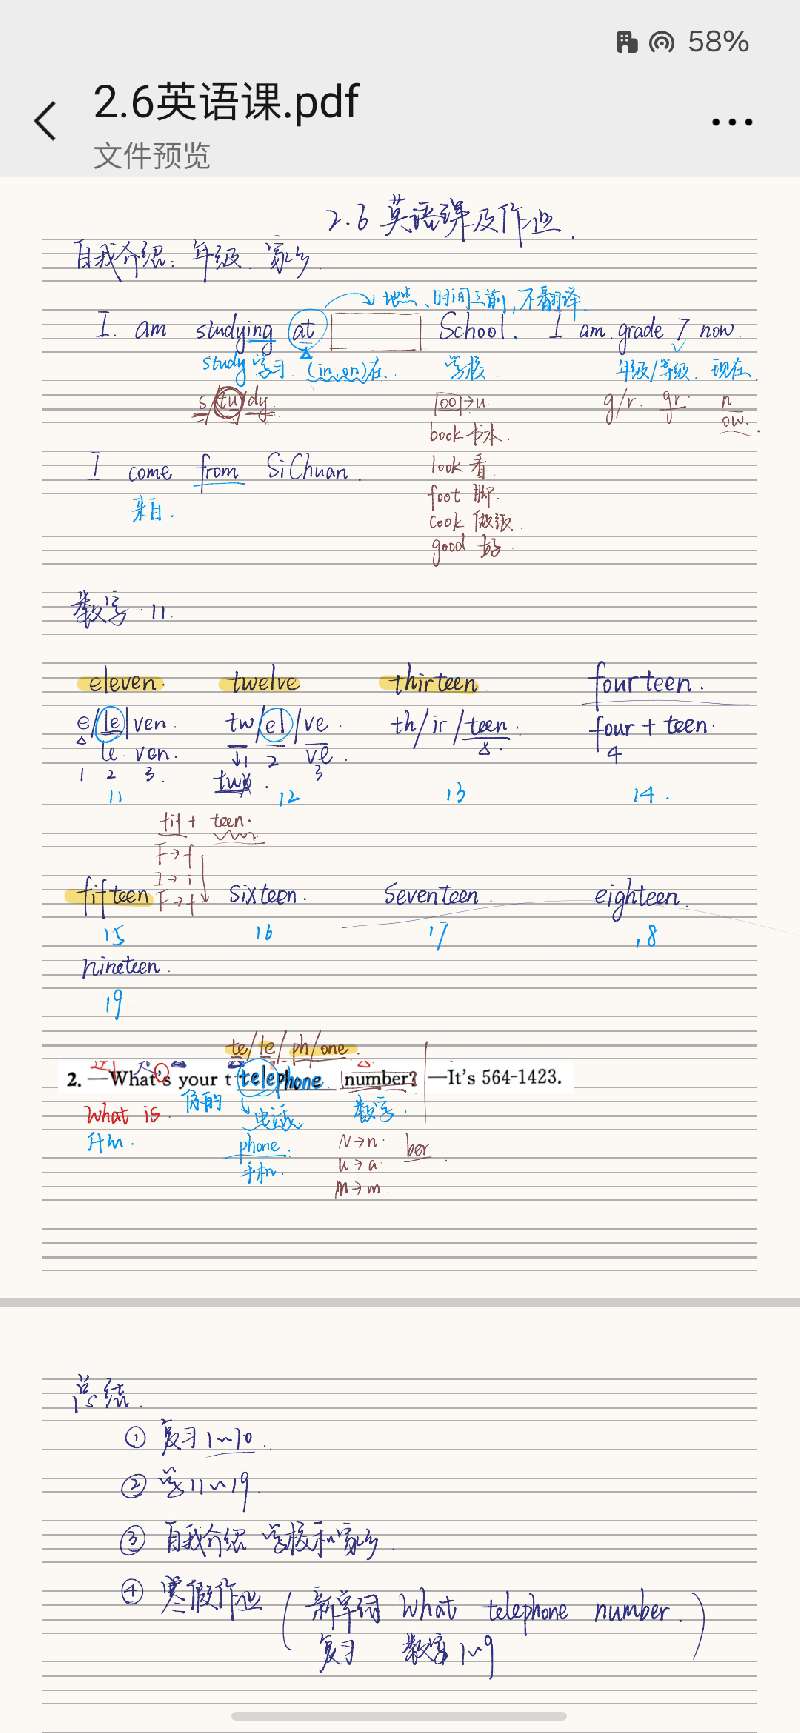 58%
2.6英语课.pdf
文件预览
2.6 英语课及作业.
自我介绍: 年级、家乡
地点、时间之前,不翻译
I am studying at School. I am grade 7 now.
study 学习. (in,on)在. 学校 年级/等级. 现在.
s/tu/dy. oo→u g/r. gr. n
ow.
book 书本.
I come from SiChuan. look 看
来自. foot 脚.
cook 做饭.
good 好.
数字 11.
eleven. twelve thirteen fourteen.
e/le/ven. tw/el/ve. th/ir/teen. four + teen.
le ven. ↓1 2 ve. 4
1 2 3. two. 3
11 12 13 14.
fif + teen.
F→f
I→i
F→f
fifteen sixteen. Seventeen eighteen.
15 16 17 18
nineteen.
19
te/le/ph/one.
2. —What's your telephone number? —It's 564-1423.
What is. 你的 电话 数字.
什么. phone. N→n. ber
手机. u→a.
m→m
总结.
① 复习1~10.
② 学11~19.
③ 自我介绍 学校和家乡.
④ 寒假作业 (新单词 What telephone number.
复习 数字1~9)